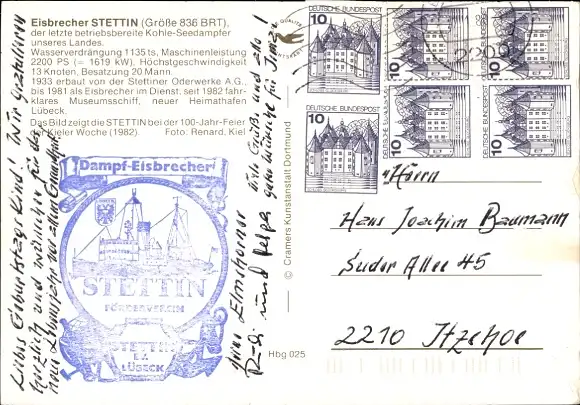 Eisbrecher STETTIN (Größe 836 BRT),
der letzte betriebsbereite Kohle-Seedampfer
unseres Landes.
Wasserverdrängung 1135 ts, Maschinenleistung
2200 PS (= 1619 kW), Höchstgeschwindigkeit
13 Knoten, Besatzung 20 Mann.
1933 erbaut von der Stettiner Oderwerke A.G.,
bis 1981 als Eisbrecher im Dienst. seit 1982 fahr-
klares Museumsschiff, neuer Heimathafen
Lübeck.
Das Bild zeigt die STETTIN bei der 100-Jahr-Feier
der Kieler Woche (1982). Foto: Renard, Kiel
Liebes Geburtstags Kind! Wir gratulieren
herzlich und wünschen für das
neue Lebensjahr vor allem Gesundheit.
Viele Grüße und also !
gute Wünsche für
Eure Elmshorner
und Helga
Dampf-Eisbrecher
STETTIN
FÖRDERVEREIN
STETTIN
E.V.
LÜBECK
© Cramers Kunstanstalt Dortmund
Hbg 025
QUALITÄT
10 DEUTSCHE BUNDESPOST
10 DEUTSCHE BUNDESPOST
10
10
10
10
2209
Herrn
Hans Joachim Baumann
Suder Allee 45
2210 Itzehoe